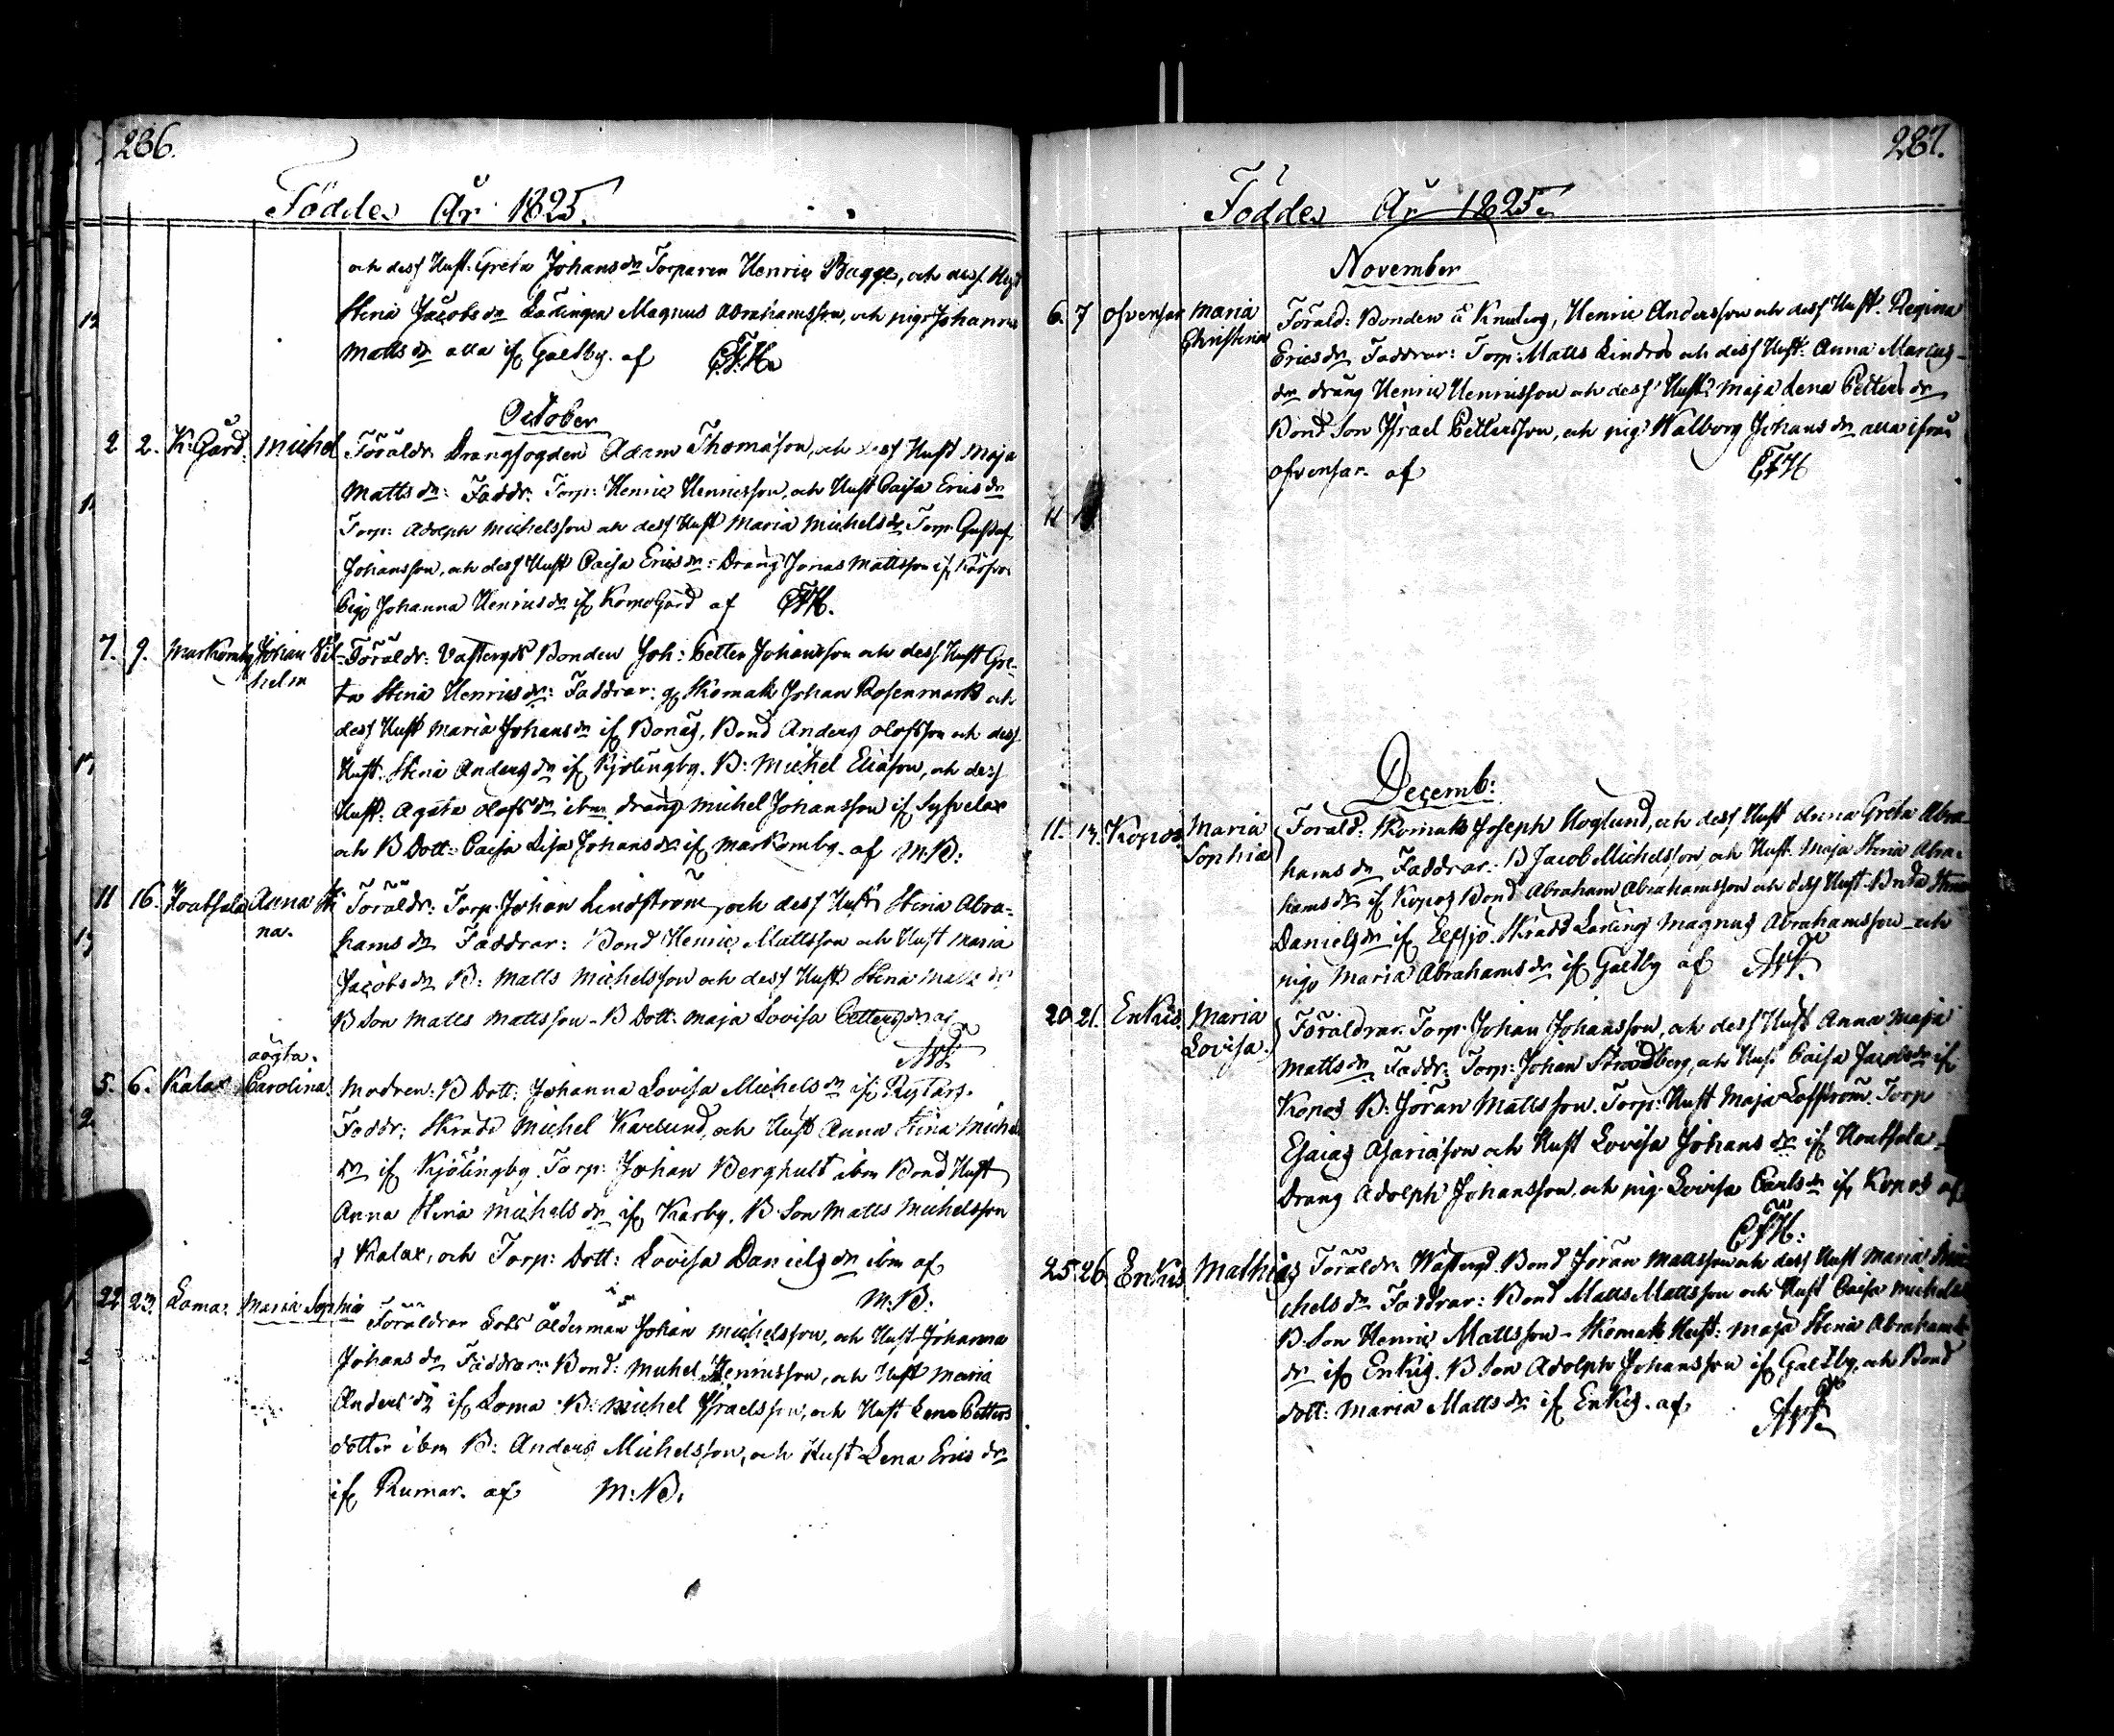 236.
Födde År 1825.
och dess Hust. Greta Johans dr Torparen Henric Bagge, och dess Hust
Stina Jacobs dr Lärlingen Magnus Abrahamsson, och pig. Johanna
Matts dr alla if. Galtby. af C.F.H.
October
2 2. K. Gård. Michel Föräldr. Drängfogden Adam Thomasson, och dess Hust Maja
Matts dr: Faddr. Torp: Henric Henricsson, och Hust Caisa Erics dr
Torp: Adolph Michelsson och dess Hust Maria Michels dr Torp Gustaf
Johansson, och dess Hust Caisa Erics dr: Dräng Jonas Mattsson if
Pig Johanna Henrics dr if Korpo Gård af CFH.
7. 9. Markomby Johan Vil- Föräldr: Bonden Joh: Petter Johansson och dess Hust Gre-
helm ta Stina Henrics dr: Faddrar: Skomak Johan Rosenmark och
dess Hust Maria Johans dr if Bonäs, Bond Anders Olofsson och dess
Hust. Stina Anders dr if Kjölingby. B: Michel Eliasson, och dess
Hust. Agata Olofs dr ibm dräng Michel Johansson if Syfvelax
och B Dott: Caisa Lisa Johans dr if Markomby. af M:B:
11 16. Anna Sti Föräldr: Torp. Johan Lindström, och dess Hust Stina Abra-
na. hams dr Faddrar: Bond Henric Mattsson och Hust Maria
Jacobs dr B: Matts Michelsson och dess Hust Stina Matts dr
B Son Matts Mattsson - B Dott: Maja Lovisa Petters dr af
oägta.
5. 6. Kalax Carolina. Modren: B Dott: Johanna Lovisa Michels dr if
Faddr: Skrädd Michel Karlund, och Hust Anna Stina Michels
dr if Kjölingby. Torp: Johan Berghult ibm Bond Hust
Anna Stina Michels dr if Karby. B Son Matts Michelsson
i Kalax, och Torp: Dott: Lovisa Daniels dr ibm af
M:B:
22 23. Loma. Maria Sophia Föräldrar Lots Ålderman Johan Michelsson, och Hust Johanna
Johans dr Faddrar: Bond: Michel Henricsson, och Hust Maria
Anders dr if Loma B: Michel Israelsson, och Hust Lena Petters
dotter ibm B: Anders Michelsson, och Hust Lena Erics dr
if Rumar. af M:B.
237.
Födde År 1825.
November
6. 7 Ofvensor Maria Föräld: Bonden Henric Andersson och dess Hust. Regina
Christina Erics dr Faddrar: Torp: Matts Lindros och dess Hust: Anna Marcus-
dr dräng Henric Henricsson och dess Hust: Maja Lena Petters dr
Bond Son Israel Pettersson, och pig: Walborg Johans dr alla ifrån
Ofvensor. af CFH
11
Decemb:
11. 13. Kopos Maria Föräld: Skomak Joseph Höglund, och dess Hust Anna Greta Abra-
Sophia hams dr Faddrar: B Jacob Michelsson, och Hust Maja Stina Abra-
hams dr if Kopos Bond Abraham Abrahamsson och dess Hust Brita Stina
Daniels dr if Elfsjö. Skrädd Lärling Magnus Abrahamsson och
pig. Maria Abrahams dr if Galtby af
20 21. Enkis Maria Föräldrar. Torp. Johan Johansson, och dess Hust Anna Maja
Lovisa. Matts dr Faddr: Torp: Johan Strandberg, och Hust Caisa Jacobs dr if
Kopos B: Jöran Mattsson. Torp: Hust Maja Löfström. Torp
Esaias Asariasson och Hust Lovisa Johans dr if
Dräng Adolph Johansson, och pig. Lovisa Carls dr if Kopos af
CFH:
25 26 Enkis Mathias Föräldr. Bond Jöran Mattsson och dess Hust Maria Mi-
chels dr Faddrar: Bond Matts Mattsson och Hust Caisa Michels
B. Son Henric Mattsson - Skomak Hust: Maja Stina Abrahams
dr if Enkis. B Son Adolph Johansson if Galtby. och Bond
dott: Maria Matts dr if Enkis. af